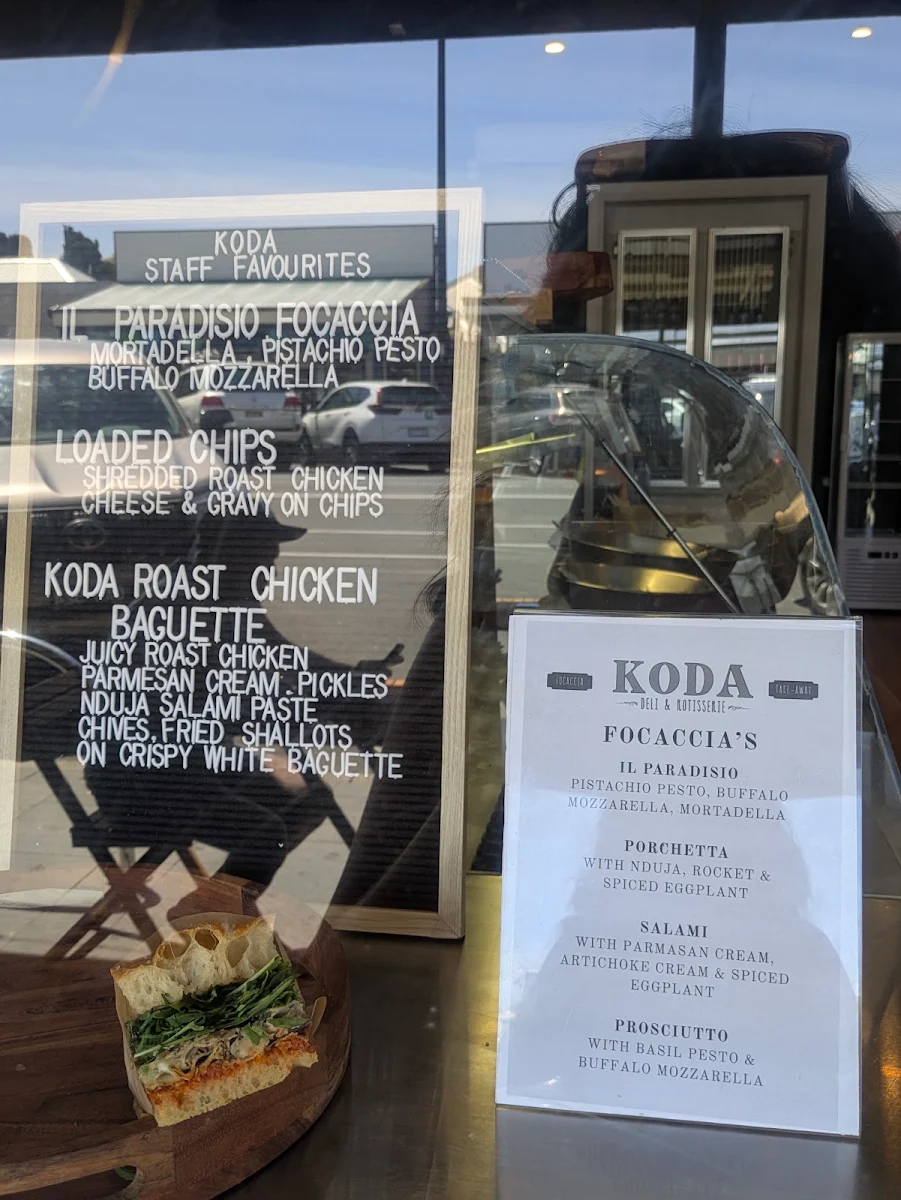 KODA
STAFF FAVOURITES
IL PARADISIO FOCACCIA
MORTADELLA, PISTACHIO PESTO
BUFFALO MOZZARELLA
LOADED CHIPS
SHREDDED ROAST CHICKEN
CHEESE & GRAVY ON CHIPS
KODA ROAST CHICKEN
BAGUETTE
JUICY ROAST CHICKEN
PARMESAN CREAM, PICKLES
NDUJA SALAMI PASTE
CHIVES, FRIED SHALLOTS
ON CRISPY WHITE BAGUETTE
FOCACCIA KODA TAKE-AWAY
DELI & ROTISSERIE
FOCACCIA'S
IL PARADISIO
PISTACHIO PESTO, BUFFALO
MOZZARELLA, MORTADELLA
PORCHETTA
WITH NDUJA, ROCKET &
SPICED EGGPLANT
SALAMI
WITH PARMASAN CREAM,
ARTICHOKE CREAM & SPICED
EGGPLANT
PROSCIUTTO
WITH BASIL PESTO &
BUFFALO MOZZARELLA